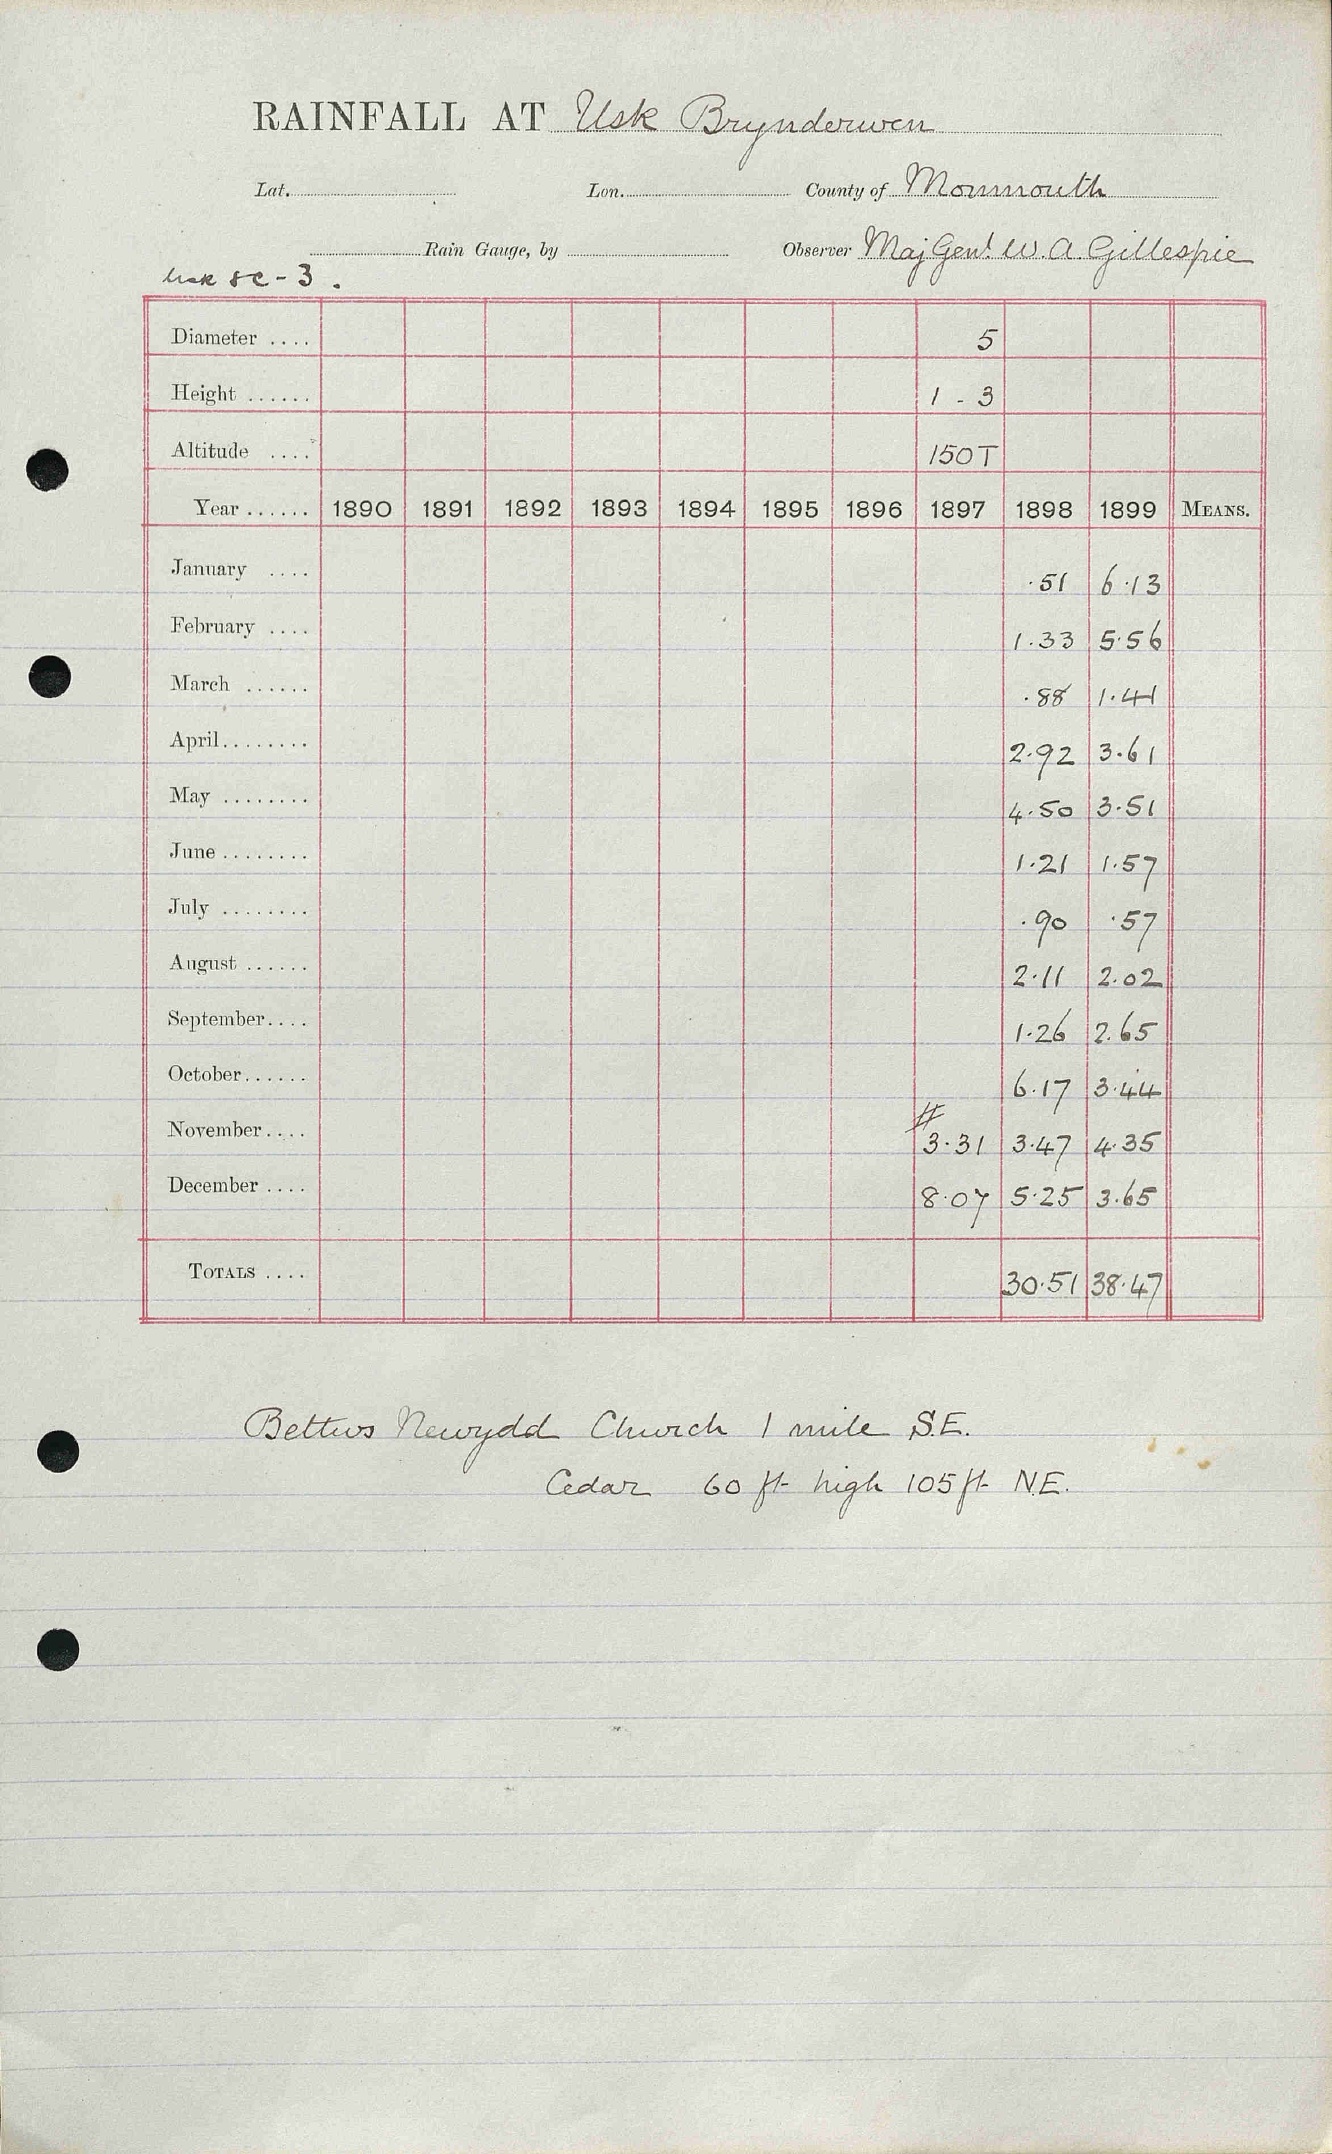 RAINFALL AT Usk Brynderwen
Lat. Lon. County of Monmouth
Rain Gauge, by Observer Maj Genl. W. A. Gillespie
Usk SE-3.
Diameter .... 5
Height ...... 1 - 3
Altitude .... 150T
Year ...... 1890 1891 1892 1893 1894 1895 1896 1897 1898 1899 MEANS.
January .... .51 6.13
February .... 1.33 5.56
March ...... .88 1.41
April........ 2.92 3.61
May ........ 4.50 3.51
June ........ 1.21 1.57
July ........ .90 .57
August ...... 2.11 2.02
September.... 1.26 2.65
October...... 6.17 3.44
#
November.... 3.31 3.47 4.35
December .... 8.07 5.25 3.65
TOTALS .... 30.51 38.47
Bettws Newydd Church 1 mile S.E.
Cedar 60 ft high 105 ft N.E.